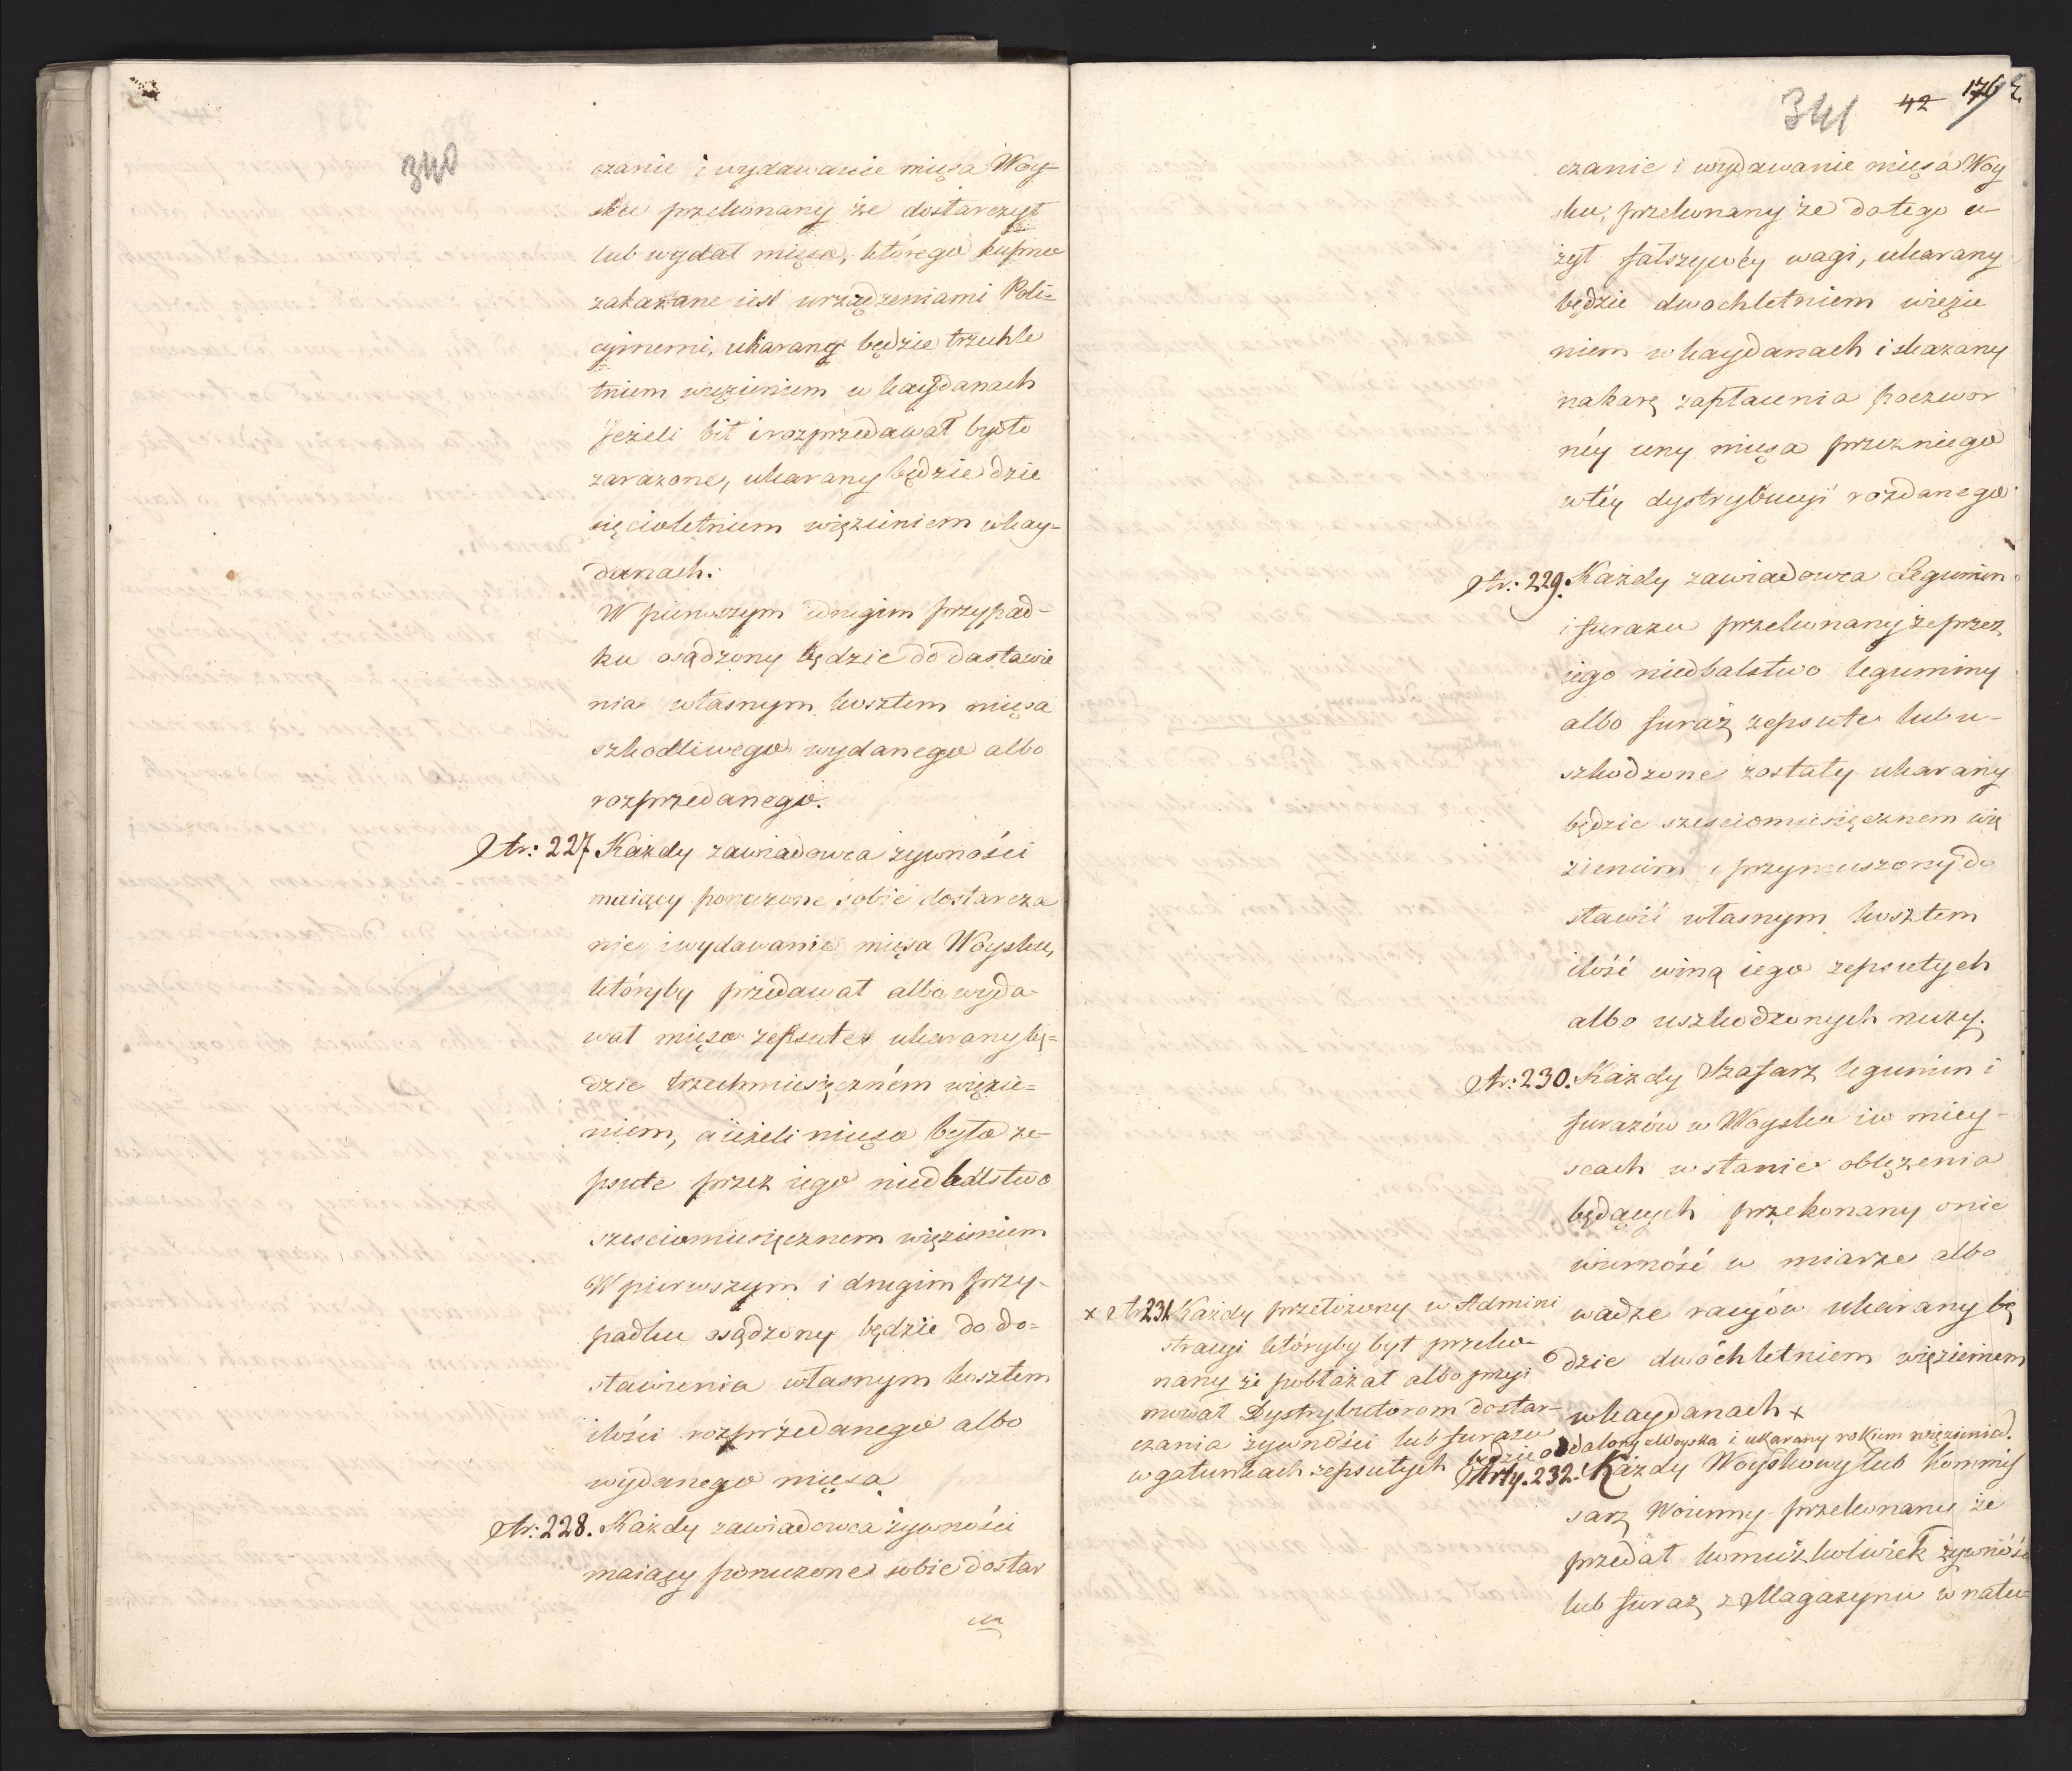 340
czanie i wydawanie mięsa Woy-
sku przekonany że dostarczył
lub wydał mięso, którego kupno
zakazane iest urządzeniami Poli-
cyinemi, ukarany będzie trzechle
tniem więzieniem w kaydanach
Jeżeli bił i rozprzedawał bydło
zarażone, ukarany będzie dzie
sięcioletniem więzieniem w kay-
danach.
W pierwszym i drugim przypad-
ku osądzony będzie do dostawie
nia własnym kosztem mięsa
szkodliwego wydanego albo
rozprzedanego.
Atr: 227 Każdy zawiadowca żywności
maiący poruczone sobie dostarcza
nie i wydawanie mięsa Woysku,
któryby przedawał albo wyda
wał mięso zepsute ukarany bę-
dzie trzechmiesięczném więzie-
niem, a ieżeli mięso było ze-
psute przez iego niedbalstwo
szesciomiesięcznem więzieniem
W pierwszym i drugim przy-
padku osądzony będzie do do-
stawienia własnym kosztem
ilości rozprzedanego albo
wydanego mięsa.
Atr: 228. Każdy zawiadowca żywności
maiący poruczone sobie dostar
341 42 176
czanie i wydawanie mięsa Woy
sku, przekonany że do tego u-
żył fałszywéy wagi, ukarany
będzie dwochletniem więzie
niem w kaydanach i skazany
na karę zapłacenia poczwor
néy ceny mięsa przez niego
w téy dystrybucyi rozdanego
Atr: 229. Każdy zawiadowca Legumin
i furażu przekonany że przez
iego niedbalstwo leguminy
albo furaż zepsute lub u-
szkodzone zostały ukarany
będzie szesciomiesięcznem wię
zieniem i przymuszony do
stawić własnym kosztem
ilość winą iego zepsutych
albo uszkodzonych rzeczy.
Atr: 230. Każdy Szafarz legumin i
furażów w Woysku i w miey-
scach w stanie oblężenia
będących przekonany o nie
wierność w miarze albo
wadze racyów ukarany bę
dzie dwóchletniem więzieniem
w kaydanach x
x Atr 231. Każdy przełożony w Admini
stracyi któryby był przeko-
nany że pobłażał albo przyi
mował Dystrybutorom dostar-
czania żywności lub furażu
w gatunkach zepsutych będzie oddalony z Woyska i ukarany rokiem więzienia.
Arty. 232. Każdy Woyskowy lub Kommis
sarz Woienny przekonany że
przedał komużkolwiek żywność
lub furaż z Magazynu w natu-